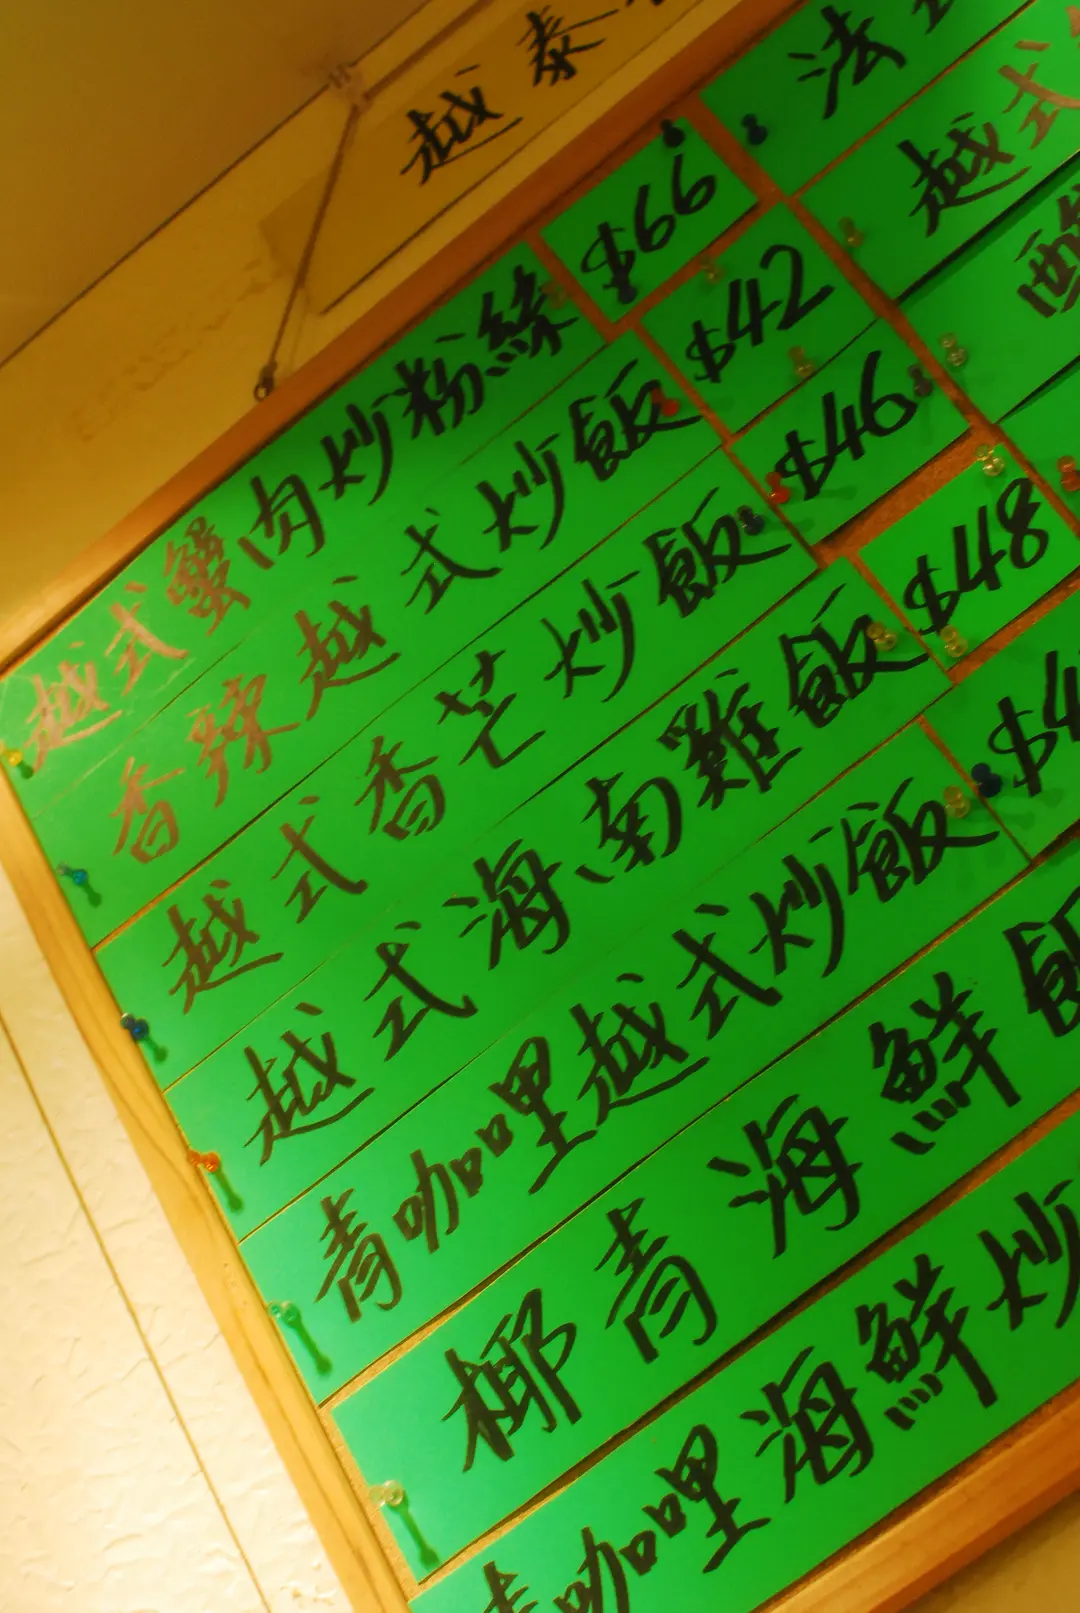 越泰
越式蟹肉炒粉絲 $66
香辣越式炒飯 $42
越式香芒炒飯 $46
越式海南雞飯 $48
青咖哩越式炒飯 $4
椰青海鮮飯
青咖哩海鮮炒
法式
越式
酸